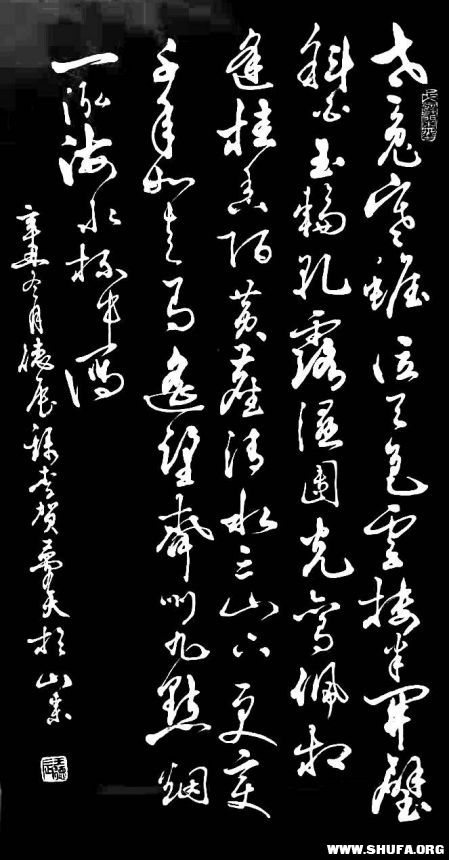 老兔寒蟾泣天色雲楼半開壁
斜白玉輪軋露濕團光鸞佩相
逢桂香陌黄塵清水三山下更变
千年如走马遥望齊州九點烟
一泓海水杯中瀉
辛丑冬月德展録李贺夢天於山東
WWW.SHUFA.ORG